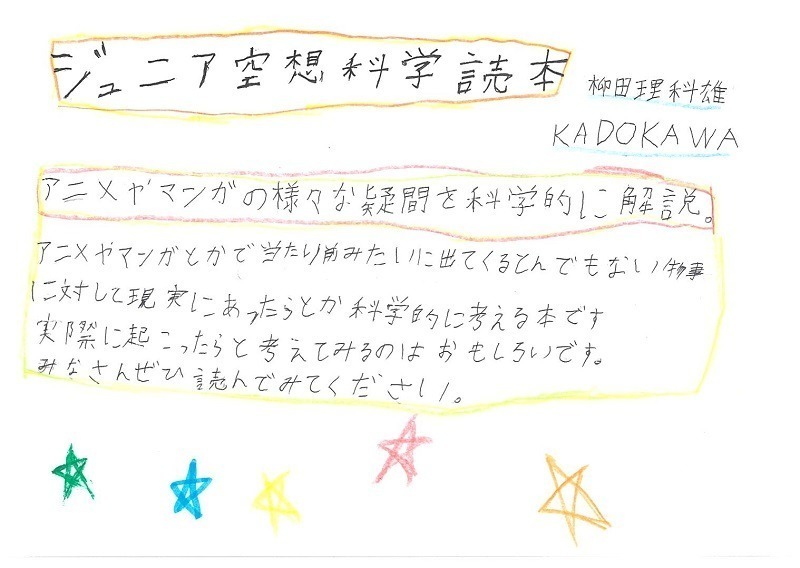 ジュニア空想科学読本
柳田理科雄
KADOKAWA
アニメやマンガの様々な疑問を科学的に解説。
アニメやマンガとかで当たり前みたいに出てくるとんでもない物事
に対して現実にあったらとか科学的に考える本です
実際に起こったらと考えてみるのはおもしろいです。
みなさんぜひ読んでみてください。